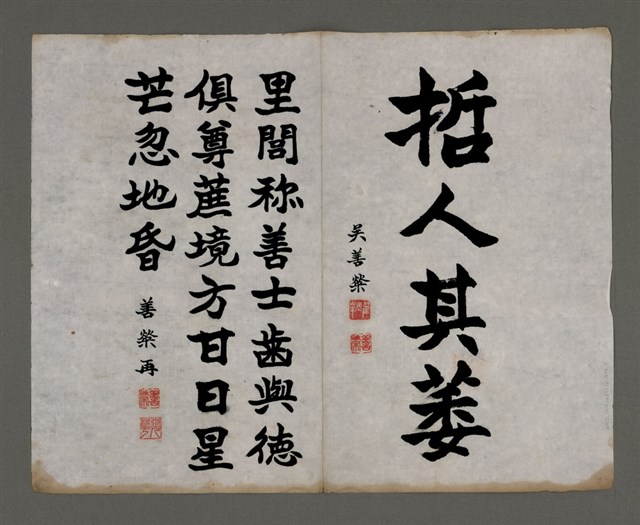 哲人其萎
吴善檠
里閭称善士齒與德
俱尊蔗境方甘日星
芒忽地昏
善檠再